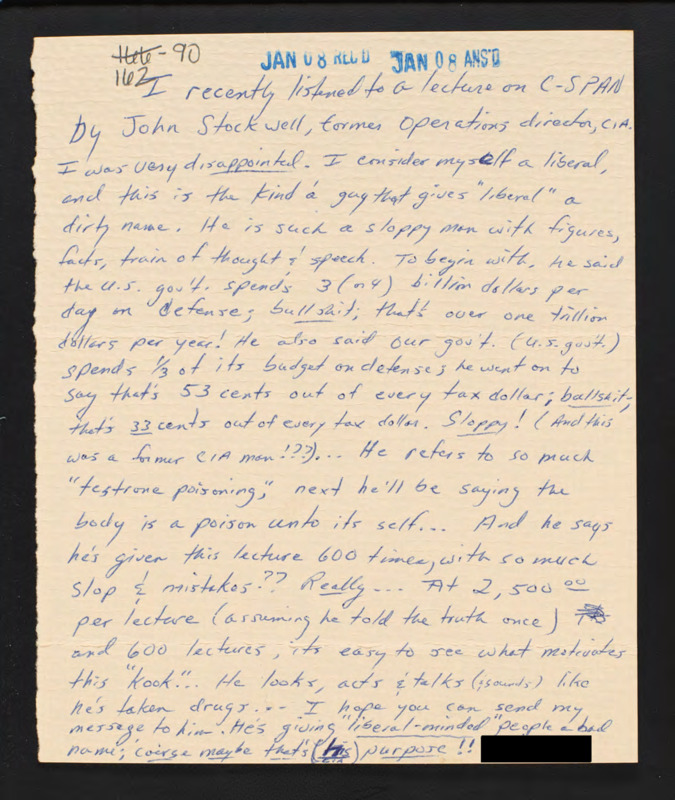 Hete - 90
JAN 08 REC'D JAN 08 ANS'D
162
I recently listened to a lecture on C-SPAN
by John Stockwell, former Operations director, CIA.
I was very disappointed. I consider myself a liberal,
and this is the kind a guy that gives "liberal" a
dirty name. He is such a sloppy man with figures,
facts, train of thought & speech. To begin with, he said
the U.S. gov't. spends 3 (or 4) billion dollars per
day on defense; bullshit; that's over one trillion
dollars per year! He also said our gov't. (U.S. govt.)
spends 1/3 of its budget on defense; he went on to
say that's 53 cents out of every tax dollar; bullshit;
that's 33 cents out of every tax dollar. Sloppy! (And this
was a former CIA man!??)... He refers to so much
"testrone poisoning," next he'll be saying the
body is a poison unto its self... And he says
he's given this lecture 600 times, with so much
slop & mistakes?? Really... At 2,500 00
per lecture (assuming he told the truth once)
and 600 lectures, its easy to see what motivates
this "kook"... He looks, acts & talks (sounds) like
he's taken drugs... I hope you can send my
message to him. He's giving "liberal-minded" people a bad
name; coirse maybe that's (his) purpose!!